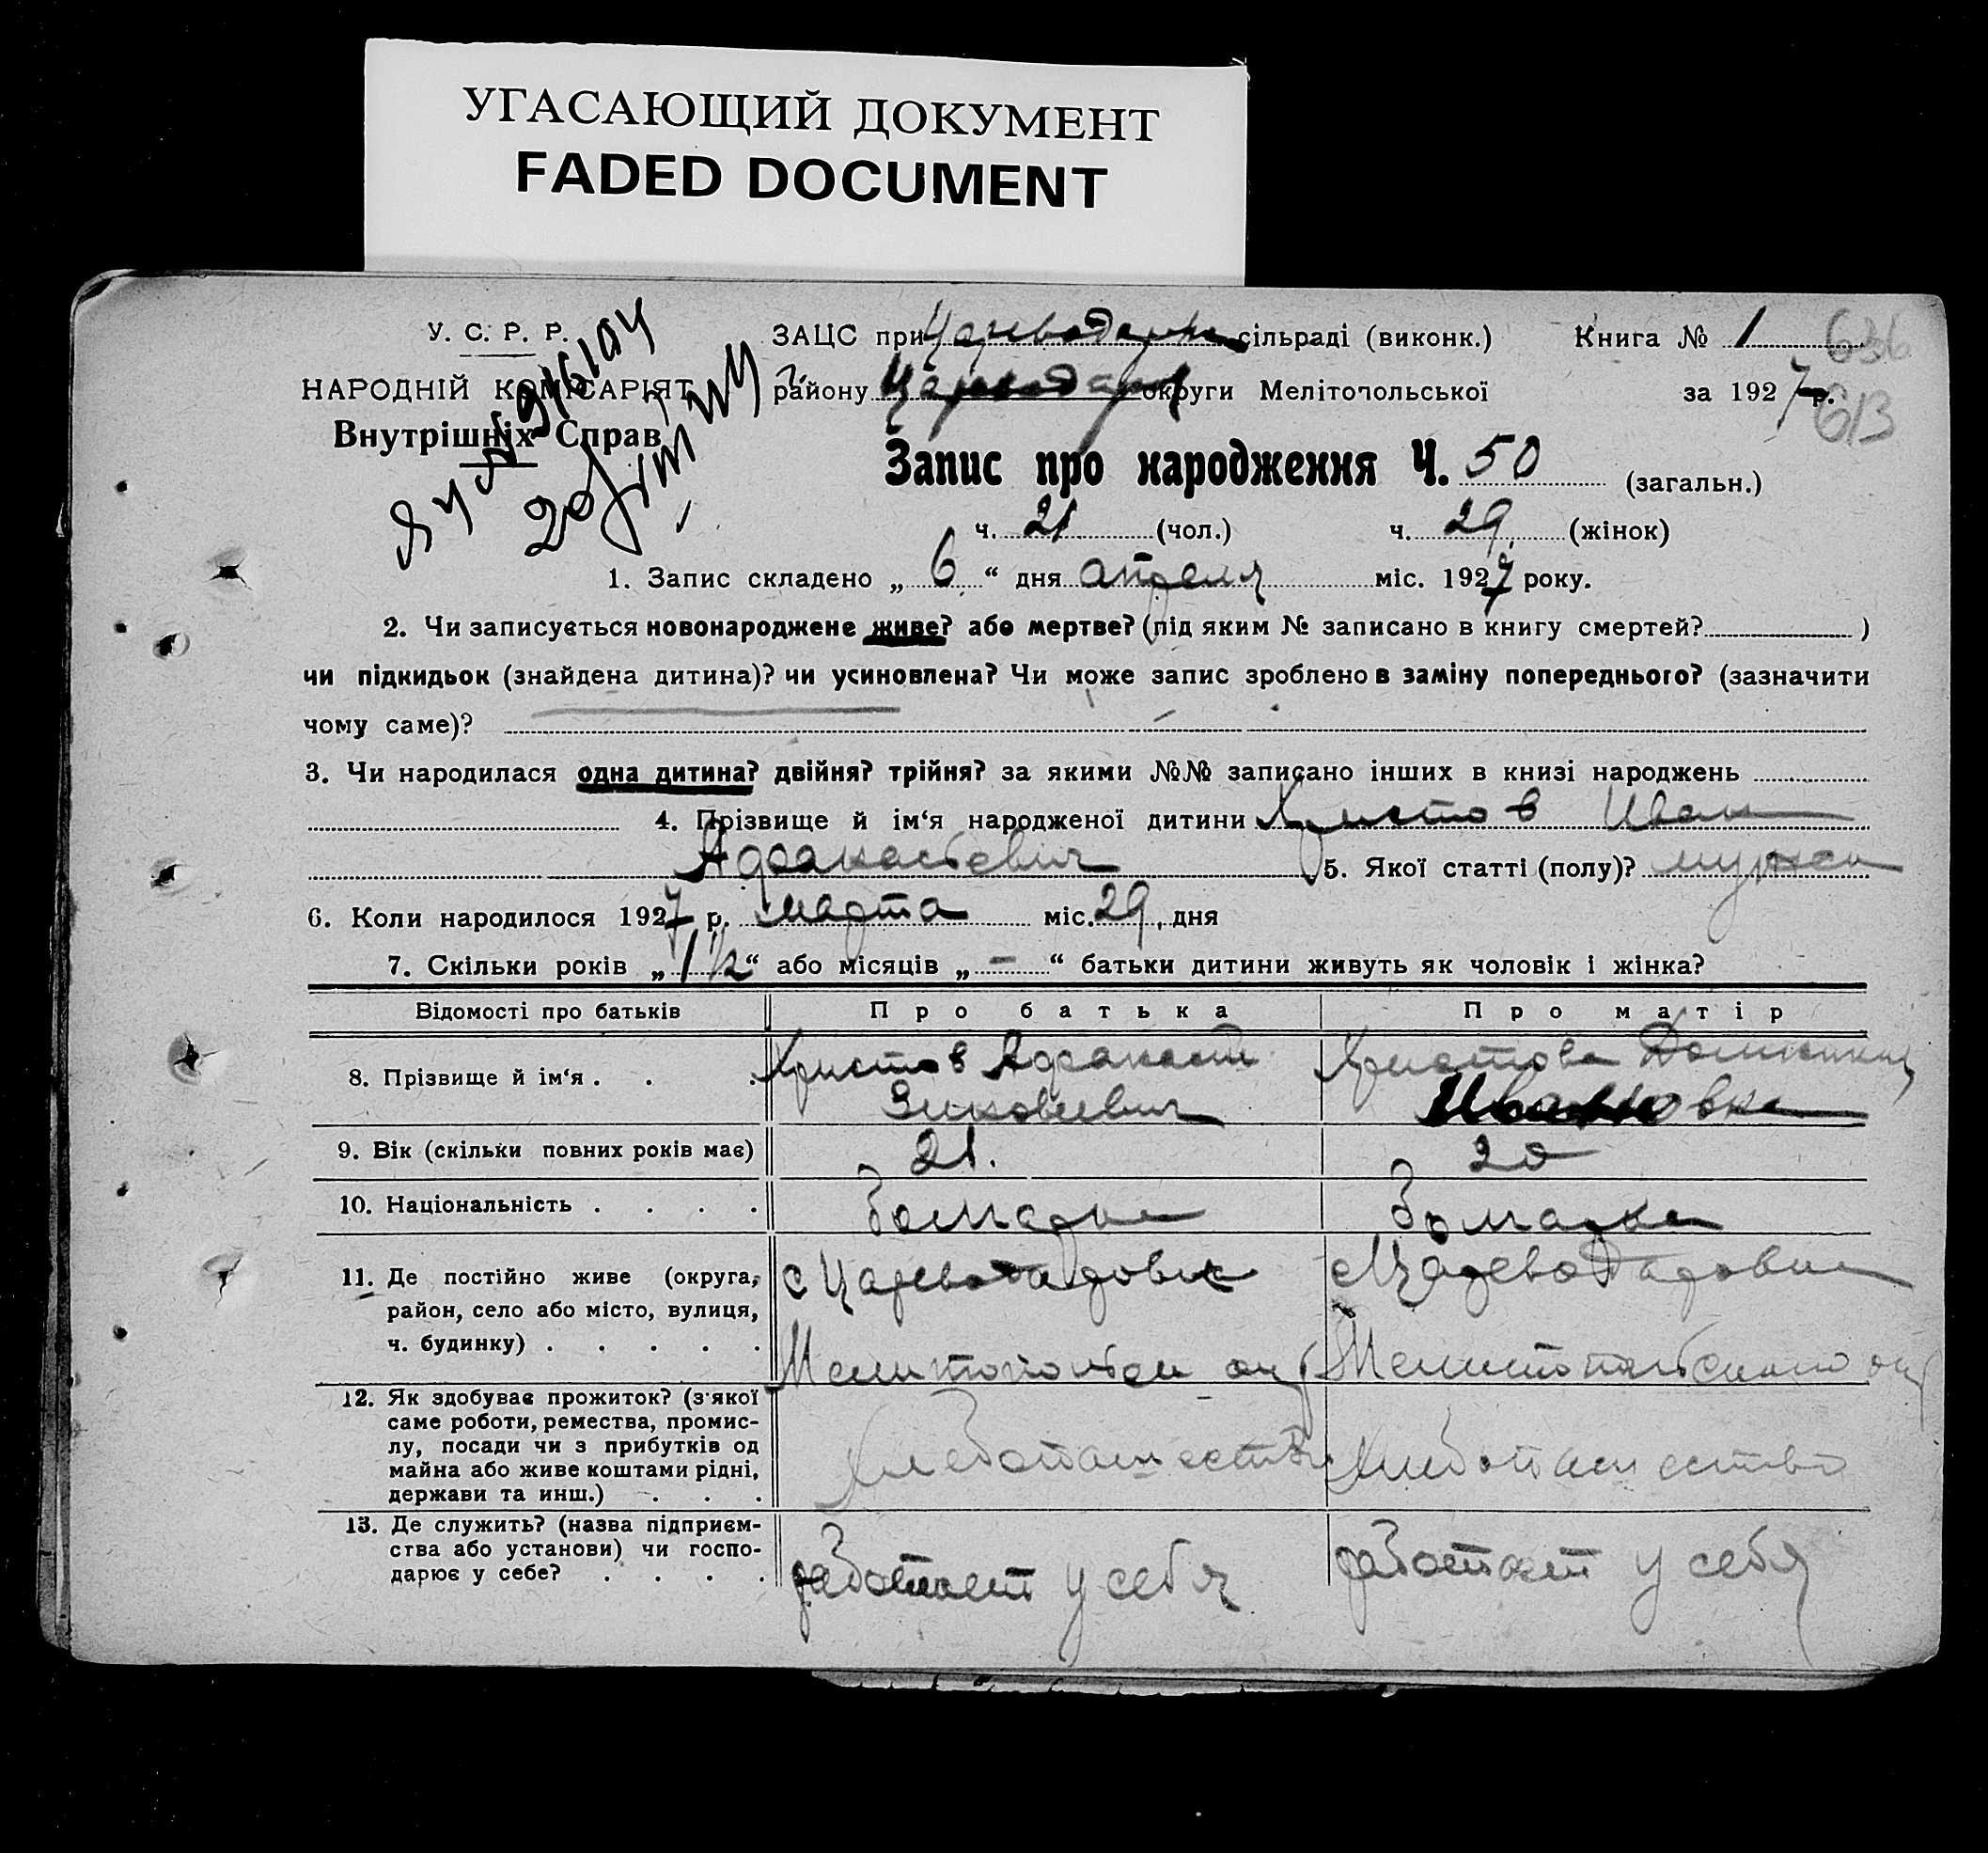 УГАСАЮЩИЙ ДОКУМЕНТ
FADED DOCUMENT
У. С. Р. Р.
НАРОДНІЙ КОМІСАРІЯТ
Внутрішніх Справ
ЗАЦС при сільраді (виконк.) Книга № 1 636
району округи Мелітопольської за 1927 р. 613
Запис про народження Ч. 50 (загальн.)
ч. 21 (чол.) ч. 29 (жінок)
1. Запис складено „ 6 “ дня апреля міс. 1927 року.
2. Чи записується новонароджене живе? або мертве? (під яким № записано в книгу смертей? )
чи підкидьок (знайдена дитина)? чи усиновлена? Чи може запис зроблено в заміну попереднього? (зазначити
чому саме)?
3. Чи народилася одна дитина? двійня? трійня? за якими №№ записано інших в книзі народжень
4. Прізвище й ім‘я народженої дитини Христов Иван
Афанасьевич 5. Якої статті (полу)?
6. Коли народилося 1927 р. марта міс. 29 дня
7. Скільки років „ 1½ “ або місяців „ - “ батьки дитини живуть як чоловік і жінка?
Відомості про батьків Про батька Про матір
8. Прізвище й ім‘я . . . Христов Христова
Ивановна
9. Вік (скільки повних років має) 21. 20
10. Національність . . . .
11. Де постійно живе (округа, с Цареводаровка с Цареводаровка
район, село або місто, вулиця,
ч. будинку) . . . . . Мелитопольск окр Мелитопольского окр
12. Як здобуває прожиток? (з'якої
саме роботи, ремества, промис-
лу, посади чи з прибутків од хлебопашество хлебопашество
майна або живе коштами рідні,
держави та инш.) . . .
13. Де служить? (назва підприєм-
ства або установи) чи госпо- работает у себя работает у себя
дарює у себе? . . . .